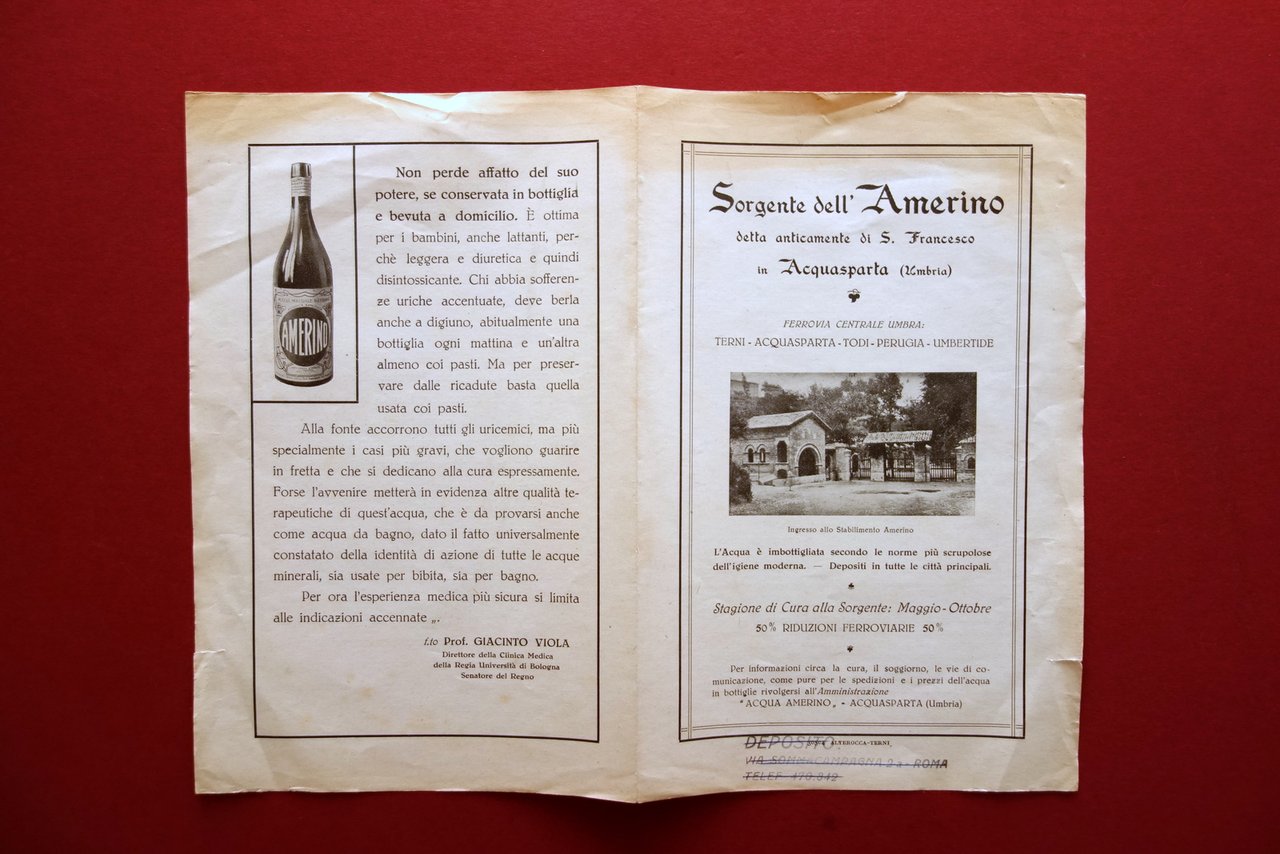 AMERINO
Non perde affatto del suo
potere, se conservata in bottiglia
e bevuta a domicilio. È ottima
per i bambini, anche lattanti, per-
chè leggera e diuretica e quindi
disintossicante. Chi abbia sofferen-
ze uriche accentuate, deve berla
anche a digiuno, abitualmente una
bottiglia ogni mattina e un'altra
almeno coi pasti. Ma per preser-
vare dalle ricadute basta quella
usata coi pasti.
Alla fonte accorrono tutti gli uricemici, ma più
specialmente i casi più gravi, che vogliono guarire
in fretta e che si dedicano alla cura espressamente.
Forse l'avvenire metterà in evidenza altre qualità te-
rapeutiche di quest'acqua, che è da provarsi anche
come acqua da bagno, dato il fatto universalmente
constatato della identità di azione di tutte le acque
minerali, sia usate per bibita, sia per bagno.
Per ora l'esperienza medica più sicura si limita
alle indicazioni accennate „.
f.to Prof. GIACINTO VIOLA
Direttore della Clinica Medica
della Regia Università di Bologna
Senatore del Regno
Sorgente dell' Amerino
detta anticamente di S. Francesco
in Acquasparta (Umbria)
FERROVIA CENTRALE UMBRA:
TERNI - ACQUASPARTA - TODI - PERUGIA - UMBERTIDE
Ingresso allo Stabilimento Amerino
L'Acqua è imbottigliata secondo le norme più scrupolose
dell'igiene moderna. — Depositi in tutte le città principali.
Stagione di Cura alla Sorgente: Maggio - Ottobre
50% RIDUZIONI FERROVIARIE 50%
Per informazioni circa la cura, il soggiorno, le vie di co-
municazione, come pure per le spedizioni e i prezzi dell'acqua
in bottiglie rivolgersi all'Amministrazione
"ACQUA AMERINO„ - ACQUASPARTA (Umbria)
ALTEROCCA-TERNI
DEPOSITO:
VIA SOMMACAMPAGNA 2a - ROMA
TELEF. 470.842